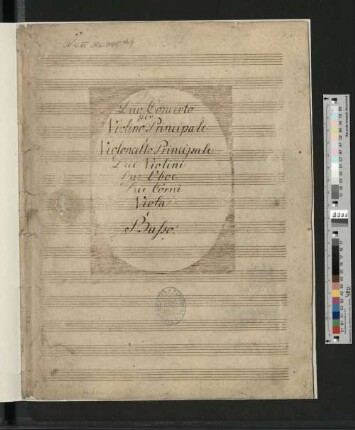 Duo Concerto
per
Violino Principale
Violoncello Principale
Due Violini
Due Oboe
Due Corni
Viola
e
Basso